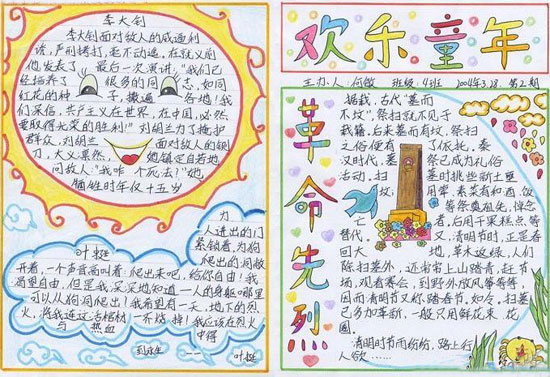 李大钊
李大钊面对敌人的威逼利
诱,严刑拷打,毫不动遥。在就义前
他发表了最后一次演讲:"我们已
经培养了很多的同志,如同
红花的种子,撒遍各地!我
们深信,共产主义在世界,在中国,必然
要取得光荣的胜利!"刘胡兰为了掩护
群众,刘胡兰面对敌人的铡
刀,大义凛然,她镇定自若地
问敌人:"我咋个死法?"她
牺牲时年仅十五岁
叶挺
为
人进出的门
紧锁着,为狗
爬出的洞敞
开着,一个声音高叫着:爬出来吧,给你自由!我
渴望自由,但是我深深地知道一人的身躯哪里
可以从狗洞爬出!我希望有一天,地下的烈
火,将我连这活棺材一齐烧掉!我应该在烈火
与热血中得
到永生——叶挺
欢乐童年
主办人:何敏 班级:4班 2004年3.28 第2期
革命先烈
据载,古代"墓而
不坟",祭扫就不见于
载籍。后来墓而有坟,祭扫
之俗便有了依托。秦
汉时代,墓祭已成为礼俗
活动。扫墓时挑些新土
坟,用荤、素菜有和酒、饭
等祭奠祖先,悼念
亡者,后用干果糕点等
替代。又,清明时,正是春
回大地,草木返绿,人们
除扫墓外,还常常上山踏青、赶节
场、观看赛会,到野外放风筝等等,
因而清明节又称踏春节。如今,扫墓
已多加革新,一般只用鲜花束、花
圈。
清明时节雨纷纷,路上行
人欲……